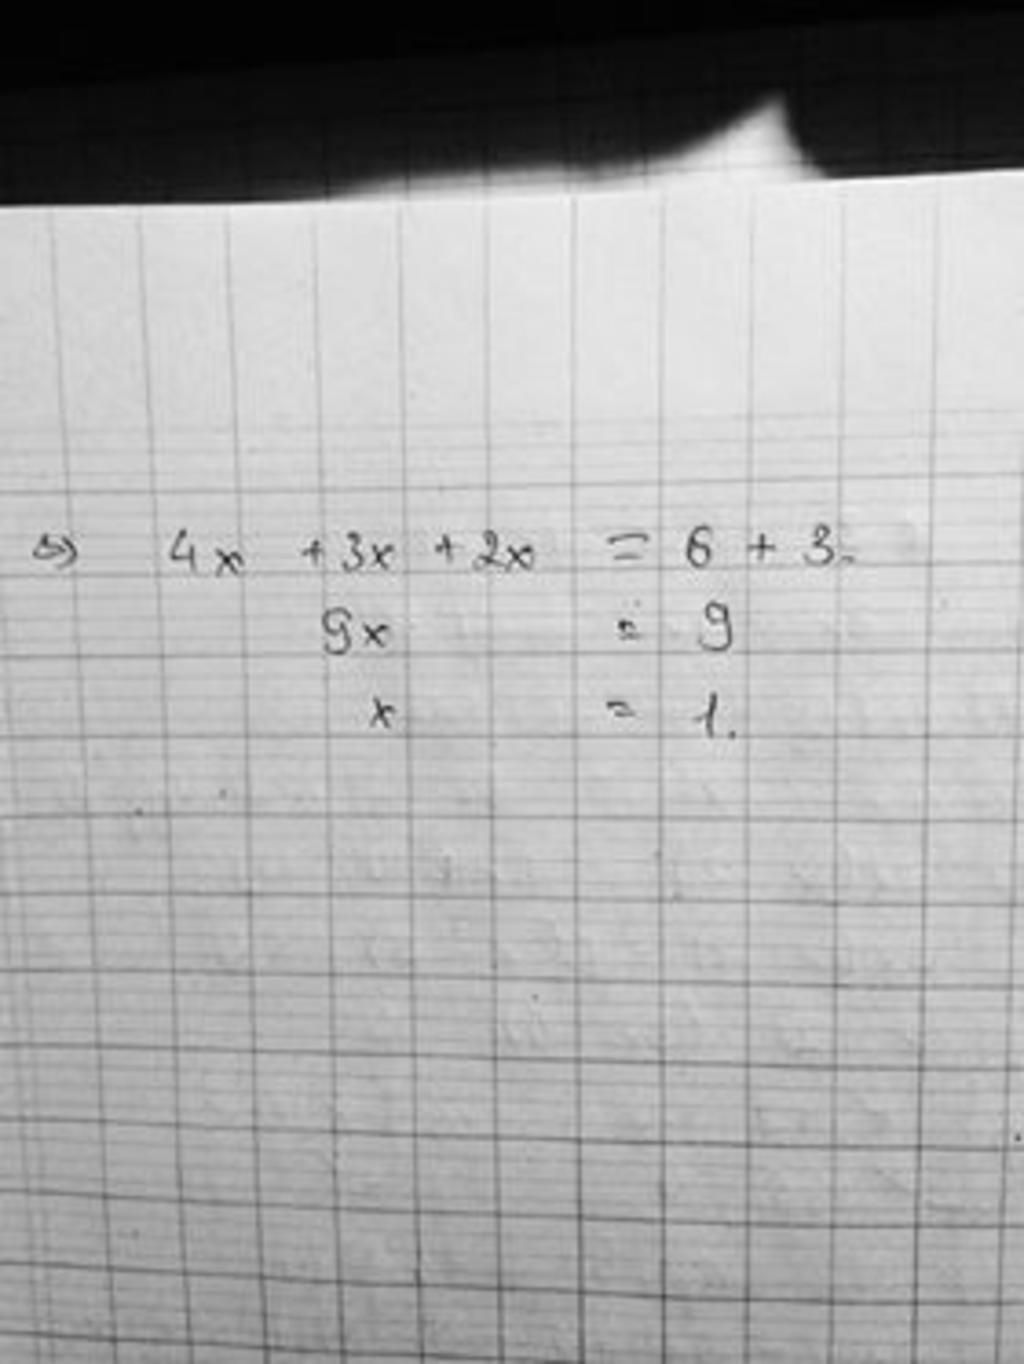 ⇔ 4x + 3x + 2x = 6 + 3.
9x = 9
x = 1.